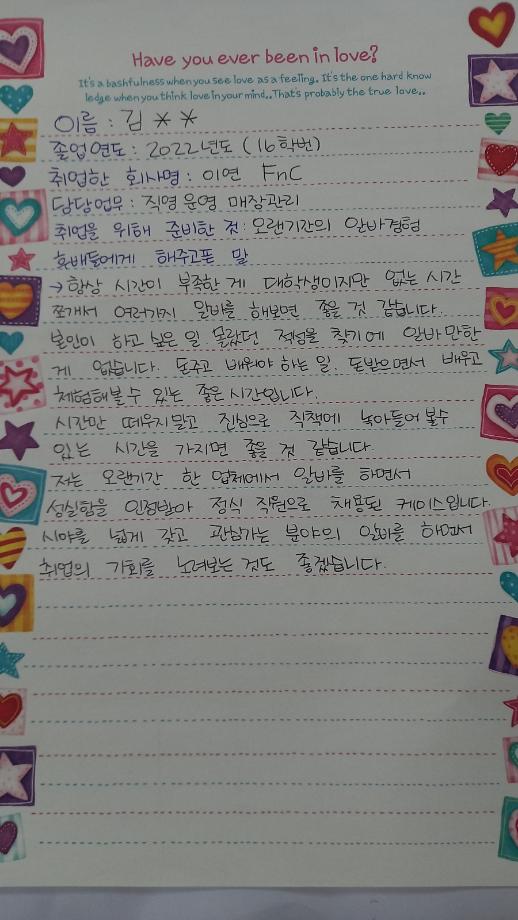 Have you ever been in love?
It's a bashfulness when you see love as a feeling. It's the one hard know
ledge when you think love in your mind.. That's probably the true love..
이름 : 김 * *
졸업연도 : 2022년도 (16학번)
취업한 회사명 : 이연 FnC
담당업무 : 직영운영 매장관리
취업을 위해 준비한 것 : 오랜기간의 알바경험
후배들에게 해주고픈 말
→ 항상 시간이 부족한 게 대학생이지만 없는 시간
쪼개서 여러가지 알바를 해보면 좋을 것 같습니다.
본인이 하고 싶은 일. 몰랐던 적성을 찾기에 알바만한
게 없습니다. 돈주고 배워야 하는 일. 돈받으면서 배우고
체험해볼 수 있는 좋은 시간입니다.
시간만 떼우지 말고 진심으로 직책에 녹아들어 볼 수
있는 시간을 가지면 좋을 것 같습니다.
저는 오랜기간 한 업체에서 알바를 하면서
성실함을 인정받아 정식 직원으로 채용된 케이스입니다.
시야를 넓게 갖고 관심가는 분야의 알바를 하면서
취업의 기회를 노려보는 것도 좋겠습니다.